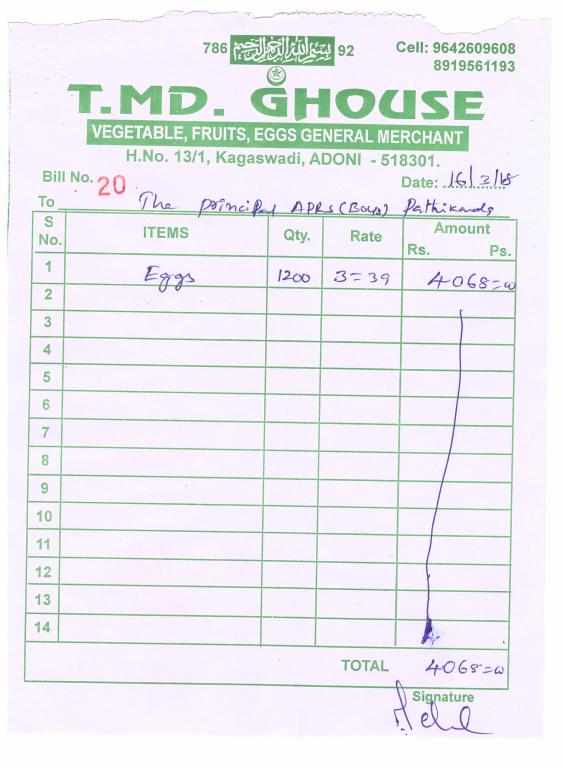 786 بسم الله الرحمن الرحيم 92
Cell: 9642609608
8919561193
T.MD. GHOUSE
VEGETABLE, FRUITS, EGGS GENERAL MERCHANT
H.No. 13/1, Kagaswadi, ADONI - 518301.
Bill No. 20 Date: 16/3/18
To The principal APRS (Boys) Pathikonda
S No. ITEMS Qty. Rate Amount
Rs. Ps.
1 Eggs 1200 3=39 4068=00
2
3
4
5
6
7
8
9
10
11
12
13
14
TOTAL 4068=00
Signature